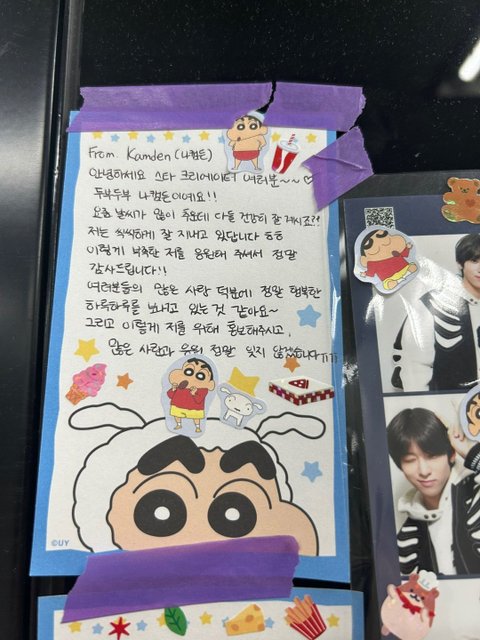 From. Kamden (나캠든)
안녕하세요 스타 크리에이터 여러분~~♡
두부두부 나캠든이에요!!
요즘 날씨가 많이 추운데 다들 건강히 잘 계시죠?!
저는 씩씩하게 잘 지내고 있답니다 ㅎㅎ
이렇게 부족한 저를 응원해 주셔서 정말
감사드립니다!!
여러분들의 많은 사랑 덕분에 정말 행복한
하루하루를 보내고 있는 것 같아요~
그리고 이렇게 저를 위해 홍보해주시고,
많은 사랑과 응원 정말 잊지 않겠습니다
©UY